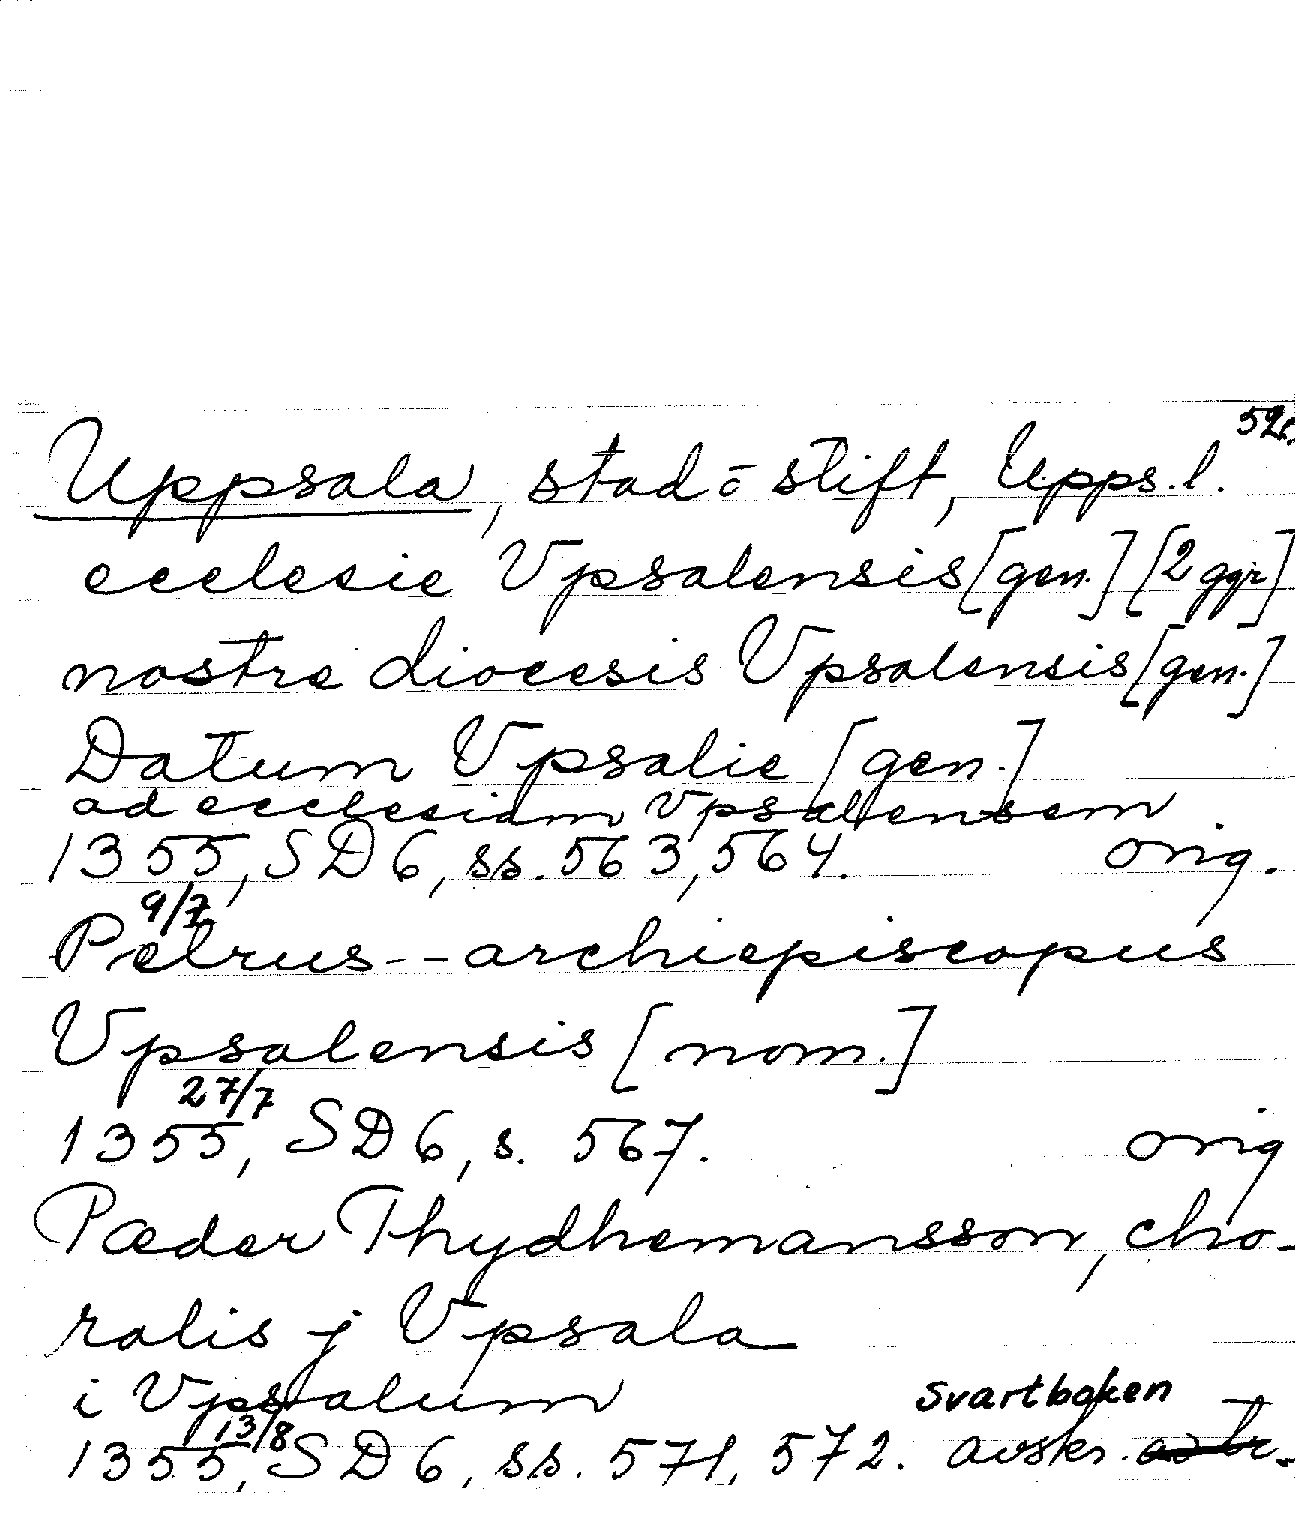 52
Uppsala, stad o stift, Upps.l.
ecclesie Vpsalensis [gen.] [2 ggr]
nostre diocesis Vpsalensis [gen.]
Datum Vpsalie [gen.]
ad ecclesiam Vpsalensem
1355, SD 6, ss. 563, 564. orig.
9/7
Petrus -- archiepiscopus
Vpsalensis [nom.]
27/7
1355, SD 6, s. 567. orig
Pæder Thydhemansson, cho-
ralis j Vpsala
i Vpsalum svartboken
13/8
1355, SD 6, ss. 571, 572. avskr.